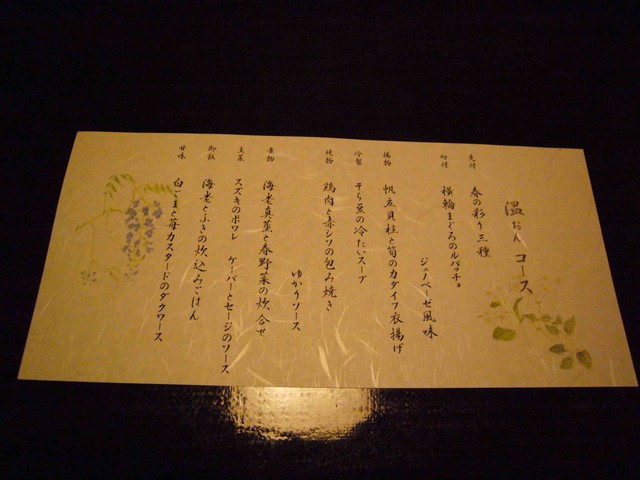 温おん コース
先付 春の彩り三種
向付 横輪まぐろのルバッチョ
ジェノベーゼ風味
揚物 帆立貝柱と筍のカダイフ衣揚げ
冷製 そら豆の冷たいスープ
焼物 鶏肉と赤シソの包み焼き
ゆかりソース
煮物 海老真薯と春野菜の炊合せ
主菜 スズキのポワレ ケーパーとセージのソース
御飯 海老とふきの炊込みごはん
甘味 白ごまと苺カスタードのダクワーズ